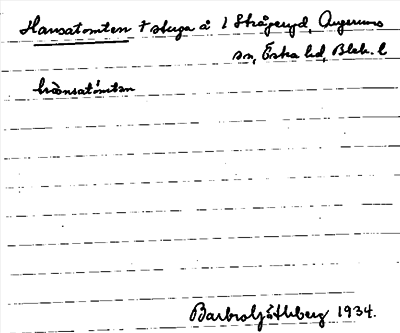 Hansatomten † stuga å 1 Strågeryd, Augerums
sn, Östra hd, Blek. l
Barbro Göthberg 1934.